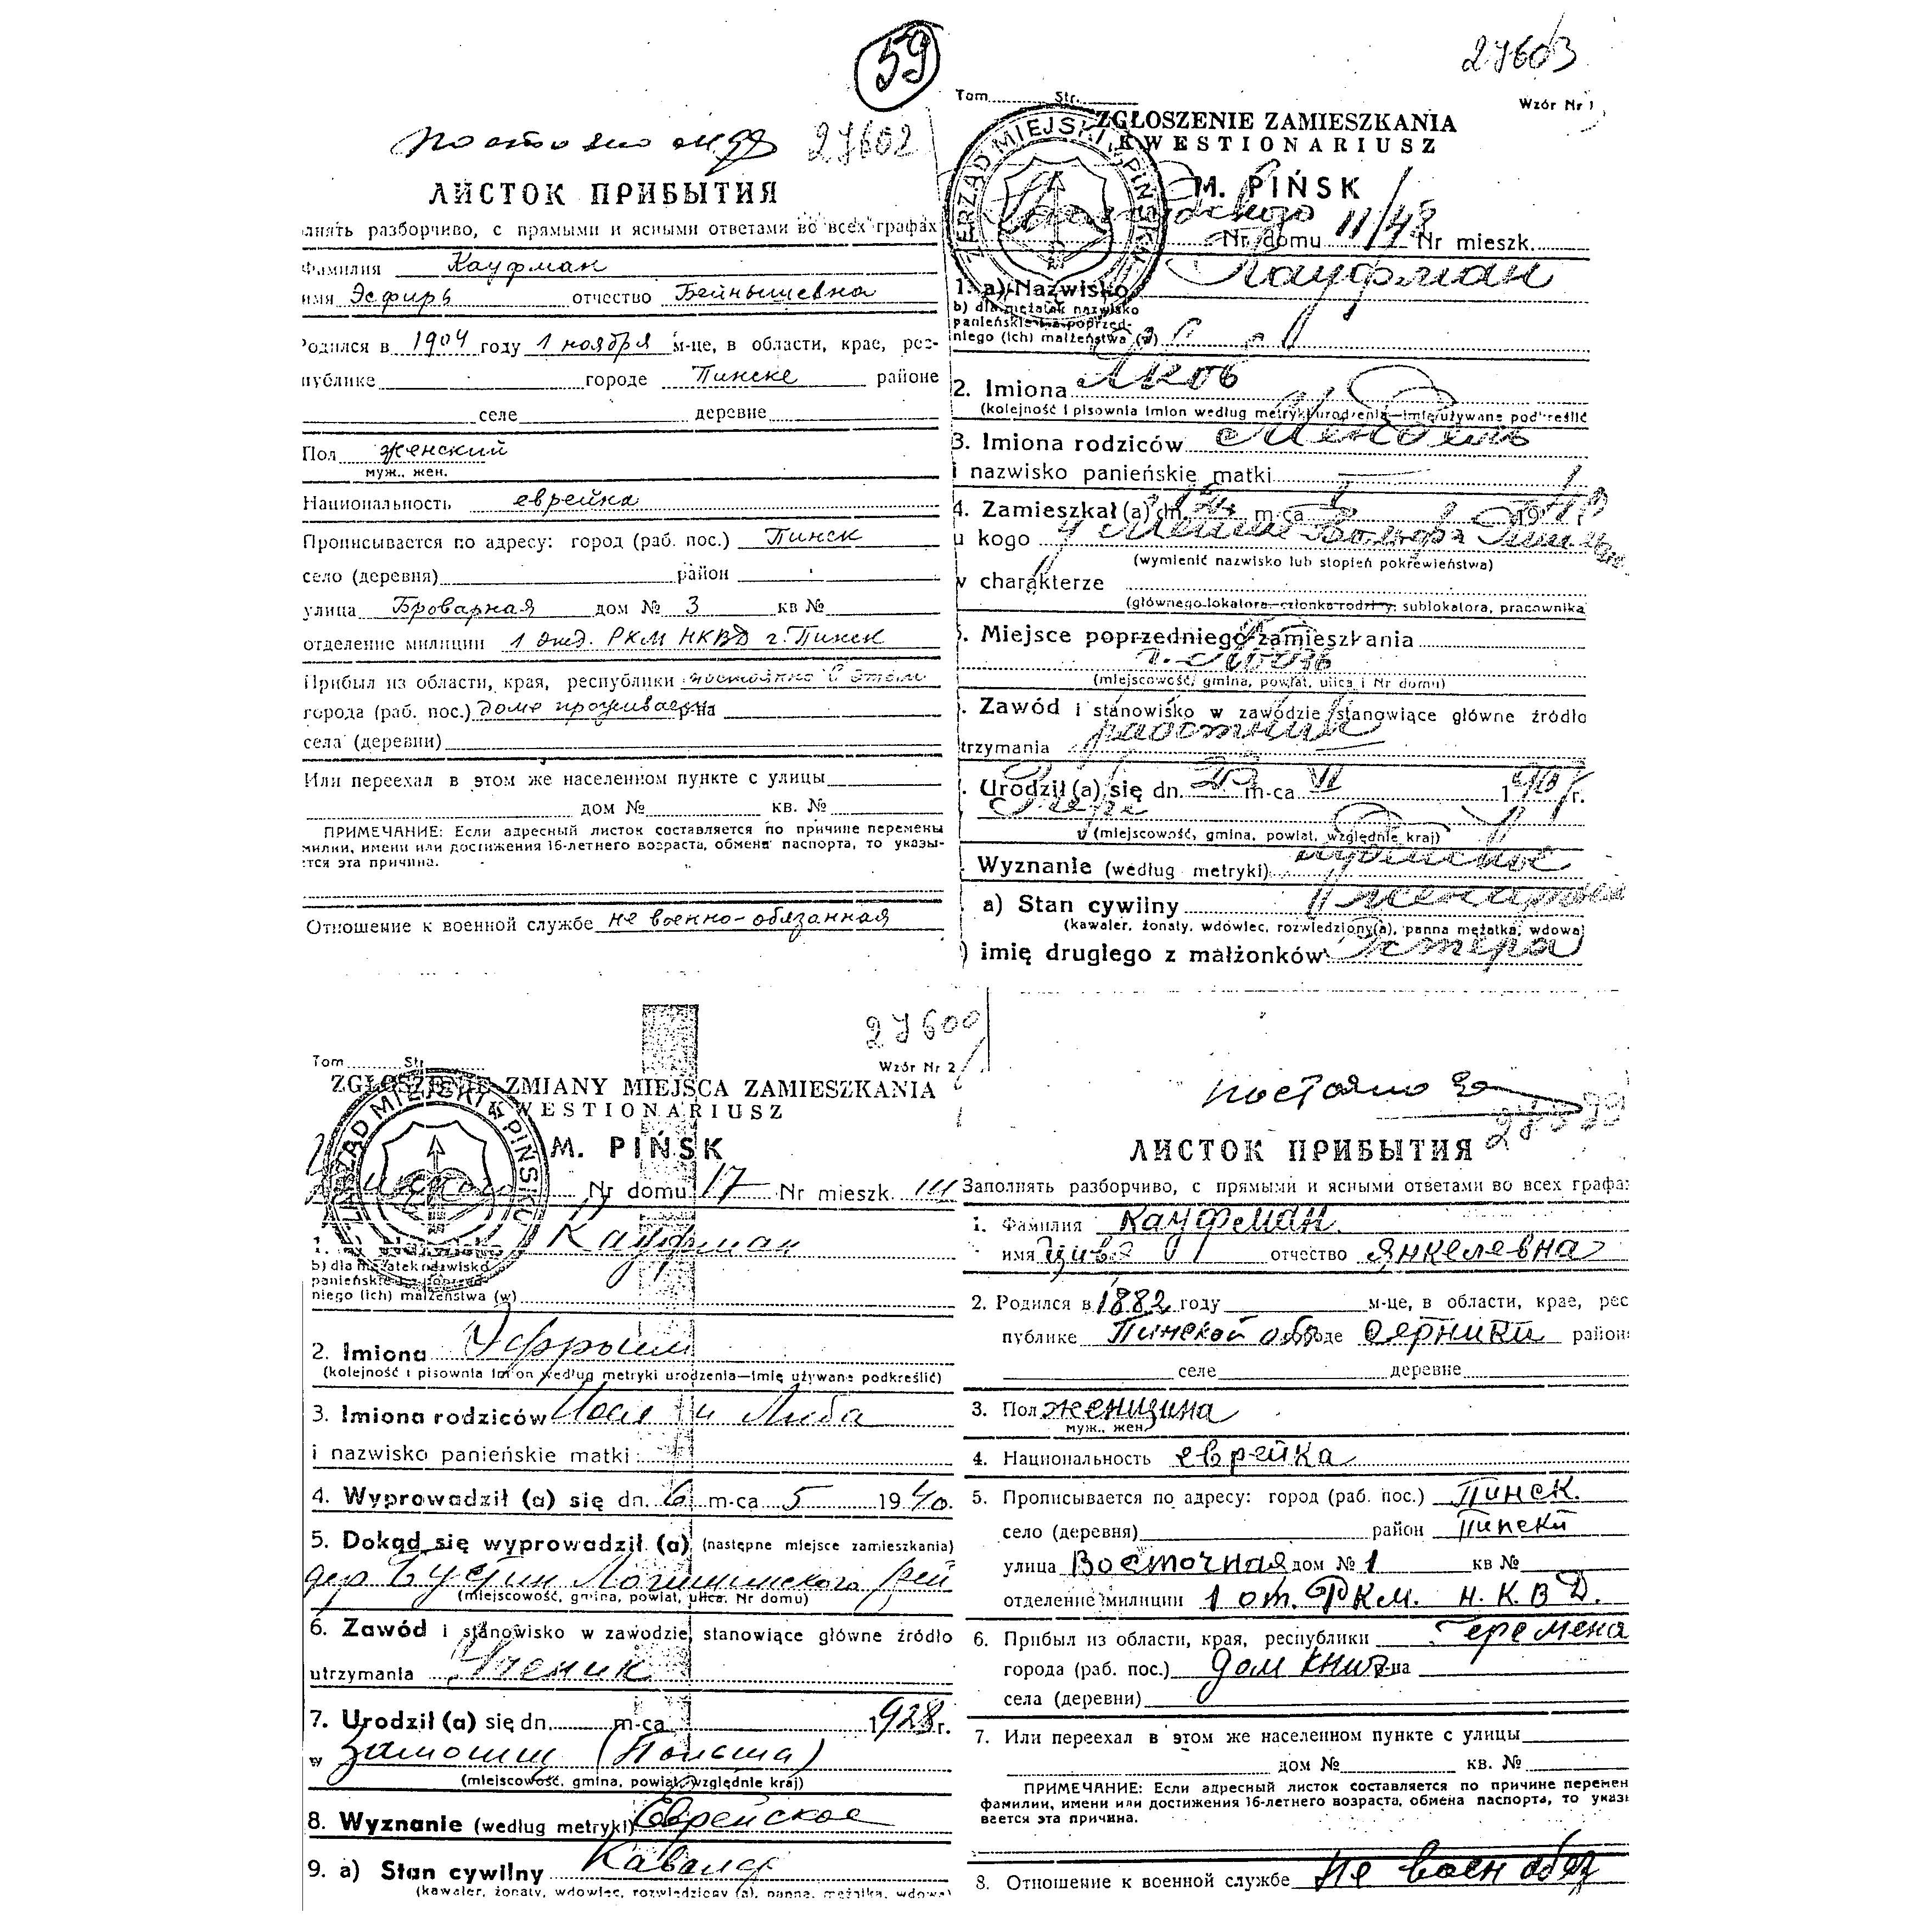 59
27602
ЛИСТОК ПРИБЫТИЯ
лнять разборчиво, с прямыми и ясными ответами во всех графах
Фамилия Кауфман
имя Эсфирь отчество Бейнышевна
Родился в 1904 году 1 ноября м-це, в области, крае, рес-
публике городе Пинске районе
селе деревне
Пол женский
муж., жен.
Национальность еврейка
Прописывается по адресу: город (раб. пос.) Пинск
село (деревня) район
улица Броварная дом № 3 кв №
отделение милиции 1 отд. РКМ НКВД г. Пинск
Прибыл из области, края, республики постоянно в этом
города (раб. пос.) доме проживает р-на
села (деревни)
Или переехал в этом же населенном пункте с улицы
дом № кв. №
ПРИМЕЧАНИЕ: Если адресный листок составляется по причине перемены
милии, имени или достижения 16-летнего возраста, обмена паспорта, то указы-
тся эта причина.
Отношение к военной службе не военно-обязанная
27603
Tom Str. Wzór Nr 1
ZGŁOSZENIE ZAMIESZKANIA
KWESTIONARIUSZ
ZARZĄD MIEJSKI W PIŃSKU
M. PIŃSK
Nr domu 11/48 Nr mieszk.
1. a) Nazwisko Кауфман
b) dla mężatek nazwisko
panieńskie i z poprzed-
niego (ich) małżeństwa (w)
2. Imiona Яков
(kolejność i pisownia imion według metryki urodzenia—imię używane podkreślić
3. Imiona rodziców Мендель
i nazwisko panieńskie matki
4. Zamieszkał (a) dn. m-ca 1940
u kogo у
(wymienić nazwisko lub stopień pokrewieństwa)
w charakterze
(głównego lokatora, członka rodziny, sublokatora, pracownika
. Miejsce poprzedniego zamieszkania
(miejscowość, gmina, powiat, ulica i Nr domu)
. Zawód i stanowisko w zawodzie stanowiące główne źródło
trzymania работник
. Urodził (a) się dn. m-ca VI 19 r.
(miejscowość, gmina, powiat, względnie kraj)
. Wyznanie (według metryki) иудейское
a) Stan cywilny женатый
(kawaler, żonaty, wdowiec, rozwiedziony(a), panna mężatka, wdowa)
) imię drugiego z małżonków Эстера
27600
Tom Str. Wzór Nr 2
ZGŁOSZENIE ZMIANY MIEJSCA ZAMIESZKANIA
KWESTIONARIUSZ
ZARZĄD MIEJSKI W PIŃSKU
M. PIŃSK
Nr domu 17 Nr mieszk.
1. a) Nazwisko Кауфман
b) dla mężatek nazwisko
panieńskie i z poprzed-
niego (ich) małżeństwa (w)
2. Imiona Эфроим
(kolejność i pisownia imion według metryki urodzenia—imię używane podkreślić)
3. Imiona rodziców и Люба
i nazwisko panieńskie matki
4. Wyprowadził (a) się dn. 6 m-ca 5 1940.
5. Dokąd się wyprowadził (a) (następne miejsce zamieszkania)
дер Логишинского рай
(miejscowość, gmina, powiat, ulica. Nr domu)
6. Zawód i stanowisko w zawodzie, stanowiące główne źródło
utrzymania Ученик
7. Urodził (a) się dn. m-ca 1928 r.
w Замошин (Польша)
(miejscowość, gmina, powiat, względnie kraj)
8. Wyznanie (według metryki) Еврейское
9. a) Stan cywilny Кавалер
(kawaler, żonaty, wdowiec, rozwiedziony (a), panna, mężatka, wdowa)
ЛИСТОК ПРИБЫТИЯ
Заполнять разборчиво, с прямыми и ясными ответами во всех графа
1. Фамилия Кауфман
имя Цивя отчество Янкелевна
2. Родился в 1882 году м-це, в области, крае, рес
публике Пинской обл городе Серники район
селе деревне
3. Пол женщина
муж., жен.
4. Национальность еврейка
5. Прописывается по адресу: город (раб. пос.) Пинск.
село (деревня) район Пинский
улица Восточная дом № 1 кв №
отделение милиции 1 от. РКМ. Н.К.В.Д.
6. Прибыл из области, края, республики
города (раб. пос.) дом книг р-на
села (деревни)
7. Или переехал в этом же населенном пункте с улицы
дом № кв. №
ПРИМЕЧАНИЕ: Если адресный листок составляется по причине перемен
фамилии, имени или достижения 16-летнего возраста, обмена паспорта, то указы
вается эта причина.
8. Отношение к военной службе Не воен обяз